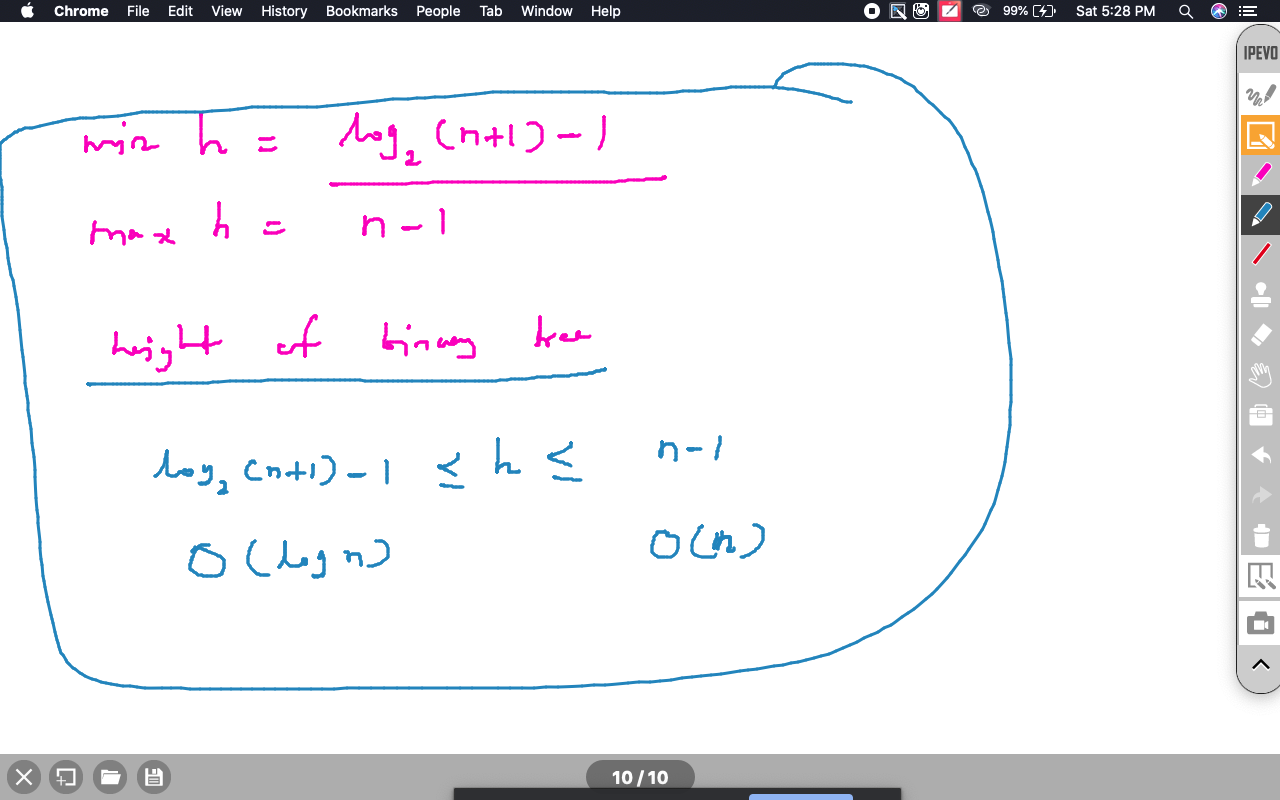 Chrome File Edit View History Bookmarks People Tab Window Help 99% Sat 5:28 PM
IPEVO
min h = log₂ (n+1) - 1
max h = n - 1
height of binary tree
log₂ (n+1) - 1 ≤ h ≤ n - 1
O (log n) O(n)
10 / 10